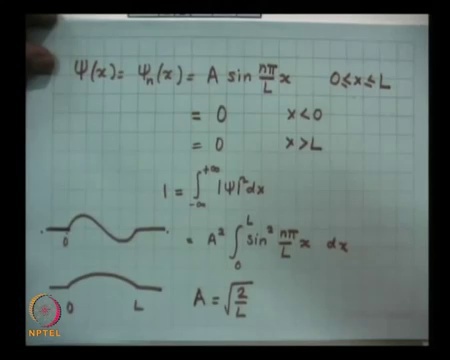 Ψ(x) = Ψn(x) = A sin nπ/L x    0≤x≤L
= 0    x<0
= 0    x>L
1 = ∫_{-∞}^{+∞} |Ψ|² dx
= A² ∫_0^L sin² nπ/L x dx
0
A = √(2/L)
0    L
NPTEL